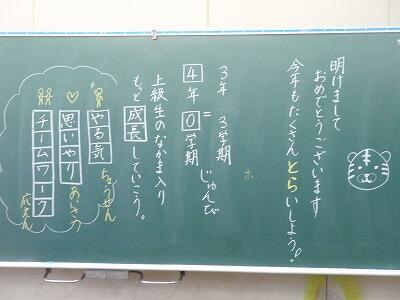 明けまして
おめでとうございます
今年もたくさんとらいしよう!
3年 3学期
= じゅんび
4年 0学期
上級生のなかま入り
もっと成長していこう。
やる気
ちょうせん
思いやり
あいさつ
チームワーク
応えん